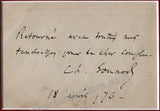 Retourné avec toutes mes
tendresses pour le cher
Ch. Gounod
18 avril 76